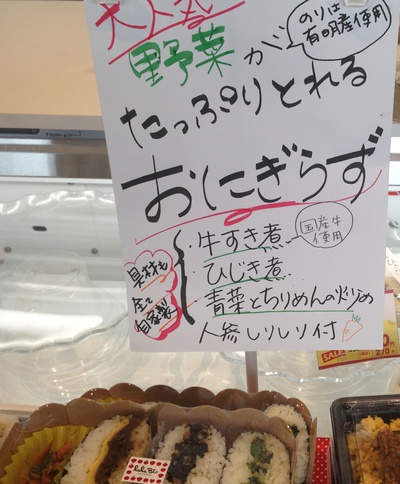 大人気
野菜が
のりは
有明産使用
たっぷりとれる
おにぎらず
・牛すき煮
国産牛
使用
・ひじき煮
・青菜とちりめんの炒りめ
人参しりしり付
具材も
全て
自家製
SALE